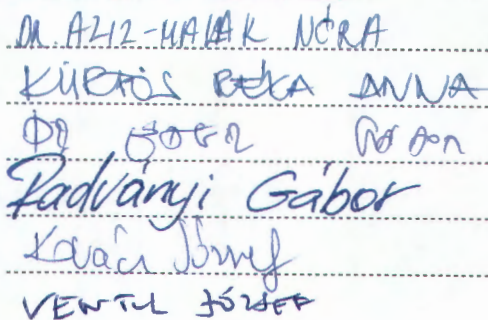 DR. AZIZ-MALAK NÓRA
KÜRTÖS RÉKA ANNA
DR
Radványi Gábor
Kovács József
VENTUL JÓZSEF